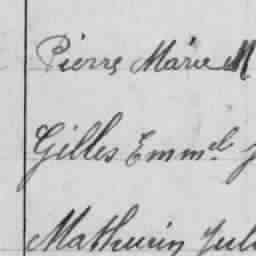 Pierre Marie M
Gilles Emm.el J
Mathurin Jul